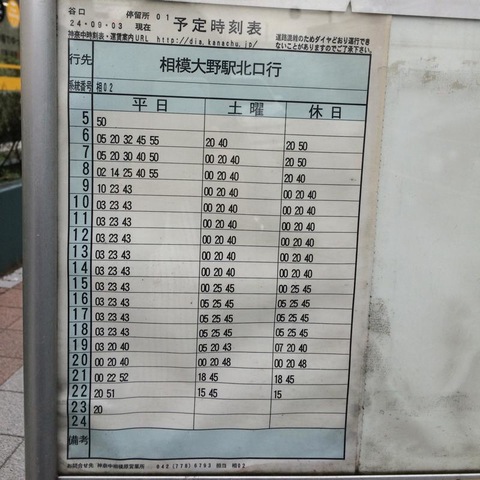 谷口 停留所 01 予定時刻表
24-09-03 現在
神奈中時刻表・運賃案内URL http://dia.kanachu.jp/
道路混雑のためダイヤどおり運行でき
ないことがありますのでご了承下さい。
行先 相模大野駅北口行
系統番号 相02
平日 土曜 休日
5 50
6 05 20 32 45 55 20 40 20 50
7 05 20 30 40 50 00 20 40 20 50
8 02 14 25 40 55 00 20 40 20 40
9 10 23 43 00 20 40 00 20 40
10 03 23 43 00 20 40 00 20 40
11 03 23 43 00 20 40 00 20 40
12 03 23 43 00 20 40 00 20 40
13 03 23 43 00 20 40 00 20 40
14 03 23 43 00 20 40 00 20 40
15 03 23 43 00 25 45 00 25 45
16 03 23 43 05 25 45 05 25 45
17 03 23 43 05 25 45 05 25 45
18 03 23 43 05 25 45 05 25 45
19 03 20 40 05 20 43 07 20 40
20 00 20 40 00 20 48 00 20 48
21 00 22 52 18 45 18 45
22 20 51 15 45 15
23 20
24
備考
お問合せ先 神奈中相模原営業所 042 (778) 6793 担当 相02